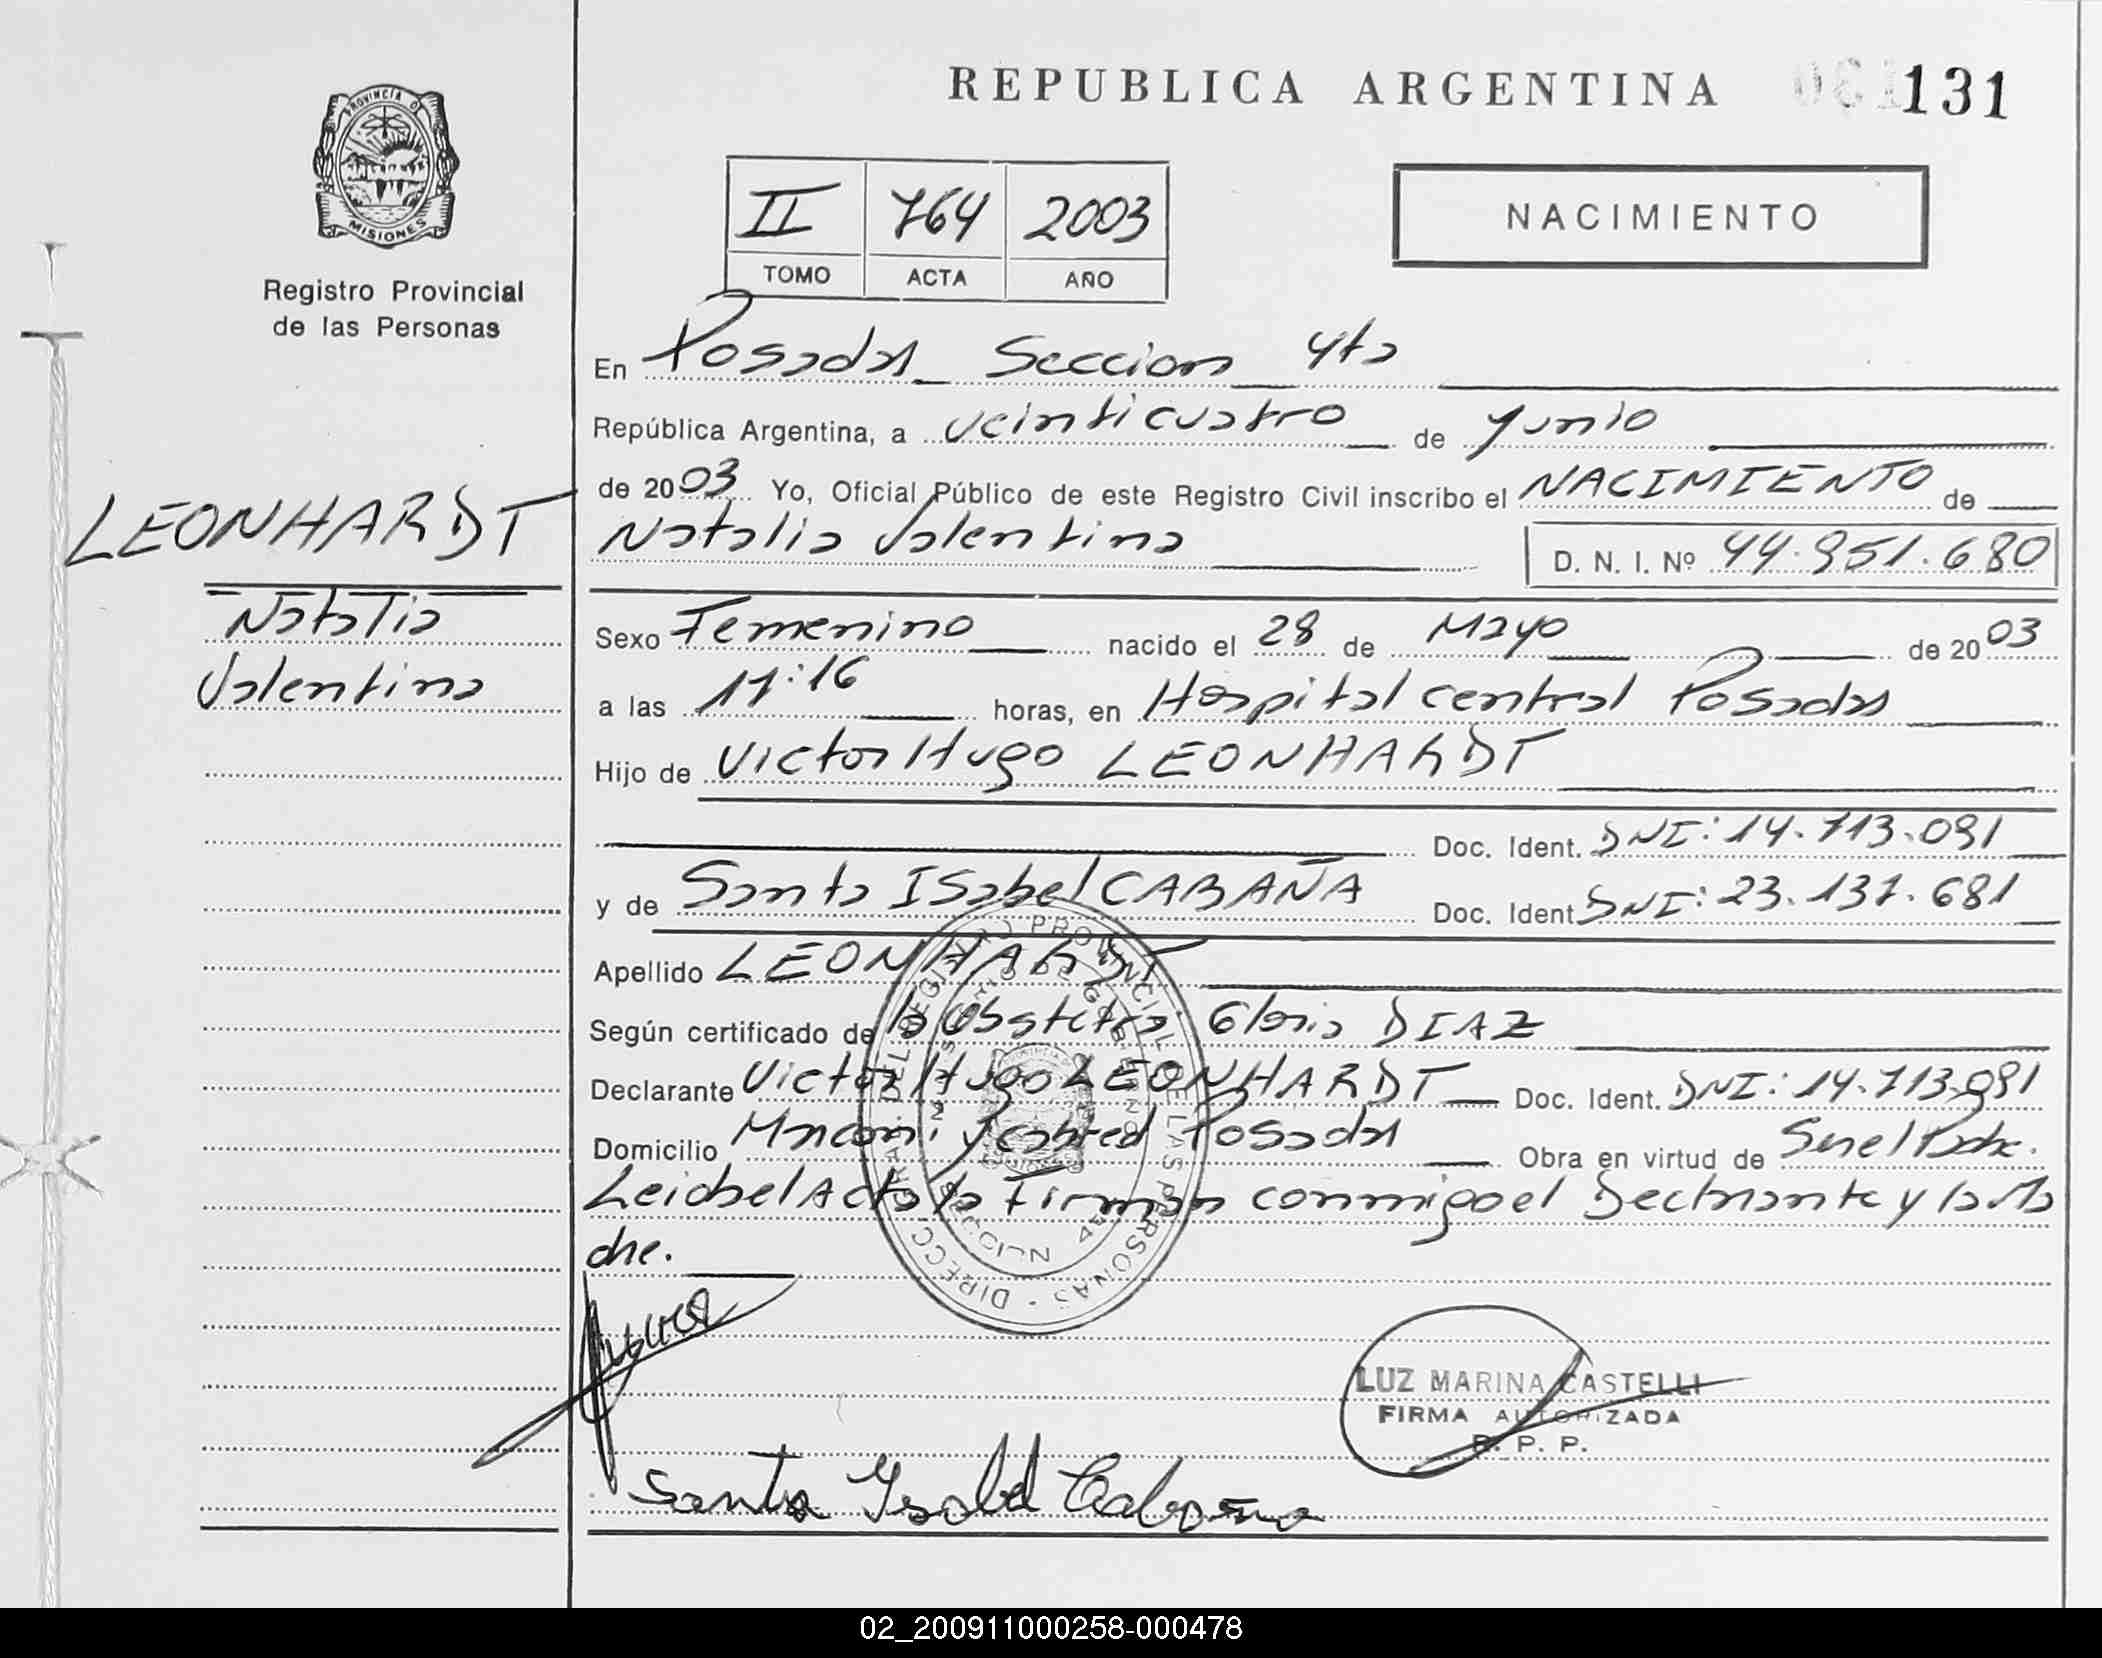 REPUBLICA ARGENTINA 131
PROVINCIA D
MISIONES
Registro Provincial
de las Personas
II 764 2003
TOMO ACTA AÑO
NACIMIENTO
En Posadas Seccion 4ta
República Argentina, a veinticuatro de Junio
de 2003 Yo, Oficial Público de este Registro Civil inscribo el NACIMIENTO de
Natalia Valentina D. N. I. Nº 44.951.680
LEONHARDT
Natalia
Valentina
Sexo Femenino nacido el 28 de Mayo de 2003
a las 11:16 horas, en Hospital central Posadas
Hijo de Victor Hugo LEONHARDT
Doc. Ident. DNI: 14.713.091
y de Santa Isabel CABAÑA Doc. Ident. DNI: 23.137.681
Apellido LEONHARDT
Según certificado de la Obstetra: Gloria DIAZ
Declarante Victor Hugo LEONHARDT Doc. Ident. DNI: 14.713.091
Domicilio Marconi y Cabred Posadas Obra en virtud de Ser el Padre.
Leida el Acta la Firman conmigo el Declarante y la Ma
dre.
DIRECC. GRAL. DEL REGISTRO PROVINCIAL DE LAS PERSONAS
LUZ MARINA CASTELLI
FIRMA AUTORIZADA
R. P. P.
Santa Ysabel Cabaña
02_200911000258-000478